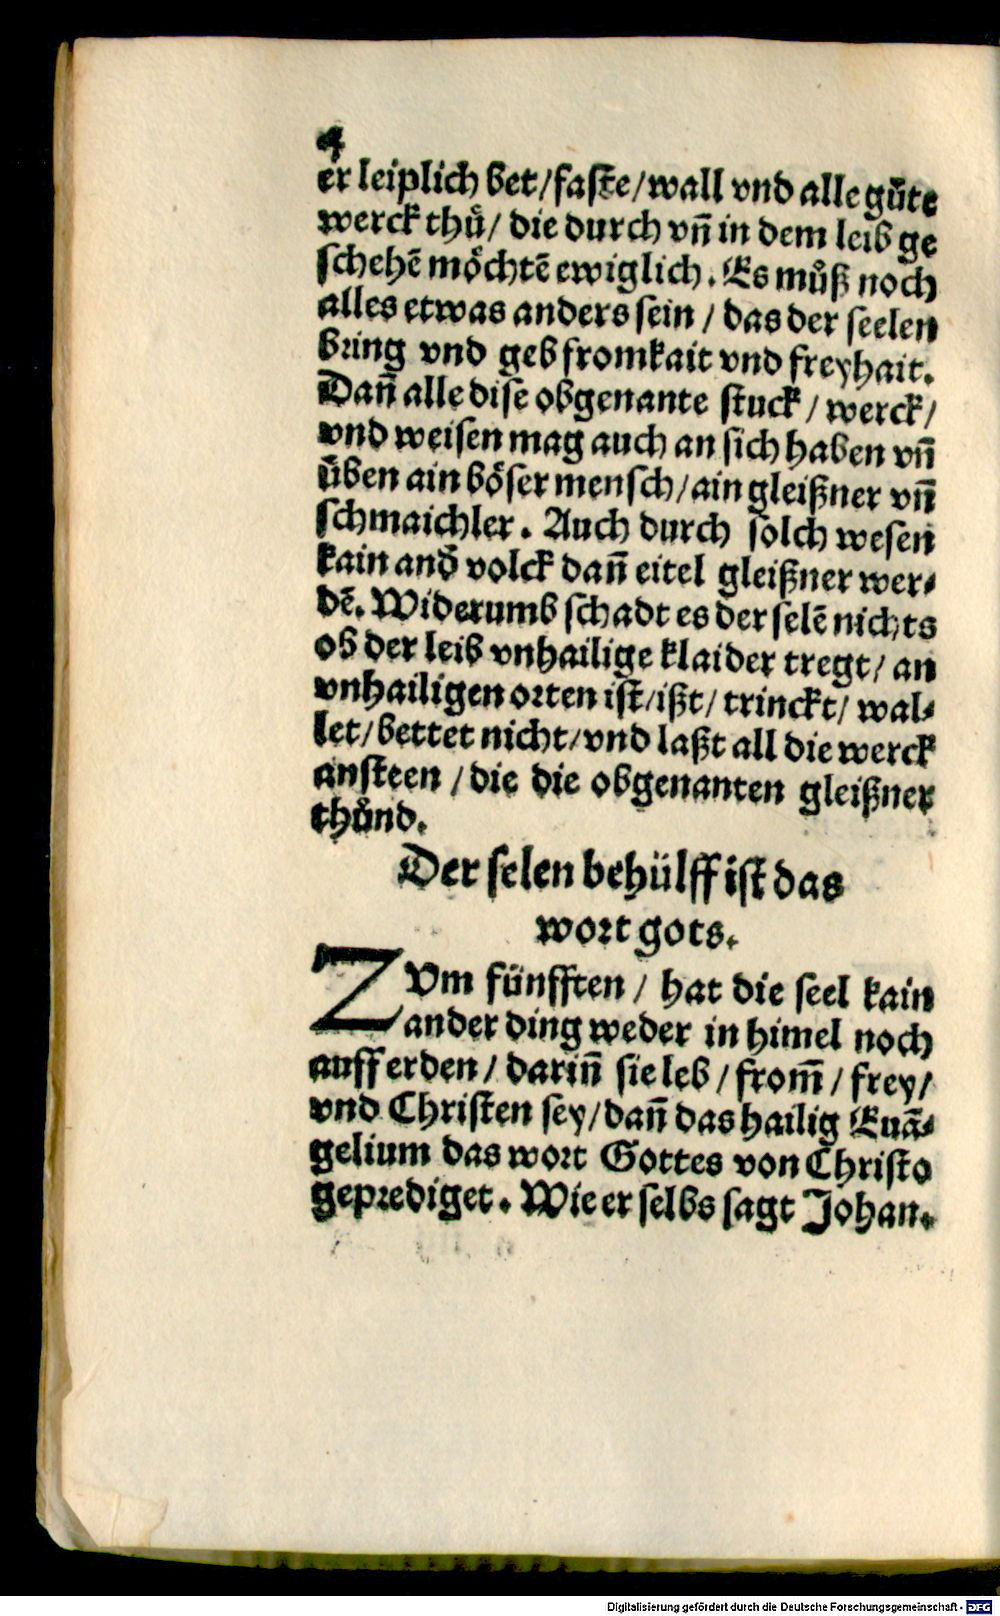 4
er leiplich bet/faste/wall vnd alle gůte
werck thů/ die durch vn̄ in dem leib ge
schehē möchtē ewiglich. Es můß noch
alles etwas anders sein / das der seelen
bring vnd geb fromkait vnd freyhait.
Dan̄ alle dise obgenante stuck / werck/
vnd weisen mag auch an sich haben vn̄
üben ain böser mensch/ain gleißner vn̄
schmaichler. Auch durch solch wesen
kain and̄ volck dan̄ eitel gleißner wer⸗
dē. Widerumb schadt es der selē nichts
ob der leib vnhailige klaider tregt/ an
vnhailigen orten ist/ißt/ trinckt/ wal⸗
let/bettet nicht/vnd laßt all die werck
ansteen /die die obgenanten gleißner
thůnd.
Der selen behülff ist das
wort gots.
ZVm fünfften / hat die seel kain
ander ding weder in himel noch
auff erden/ darin̄ sie leb / from̄ / frey/
vnd Christen sey/dan̄ das hailig Euā⸗
gelium das wort Gottes von Christo
geprediget. Wie er selbs sagt Johan.
Digitalisierung gefördert durch die Deutsche Forschungsgemeinschaft - DFG